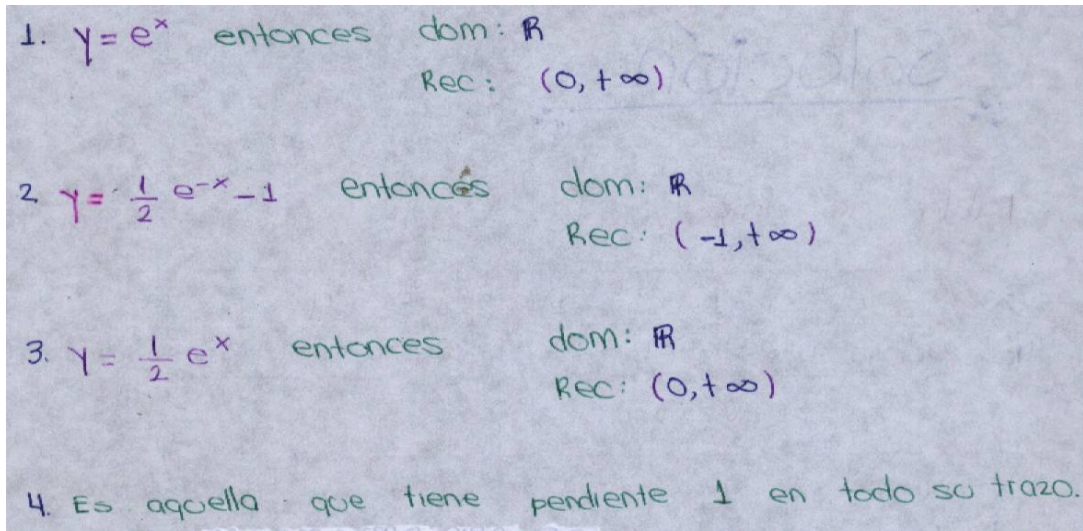 1. y = e^x entonces dom: ℝ
Rec: (0, +∞)
2 y = 1/2 e^-x - 1 entoncés dom: ℝ
Rec: (-1, +∞)
3. y = 1/2 e^x entonces dom: ℝ
Rec: (0, +∞)
4. Es aquella que tiene pendiente 1 en todo su trazo.